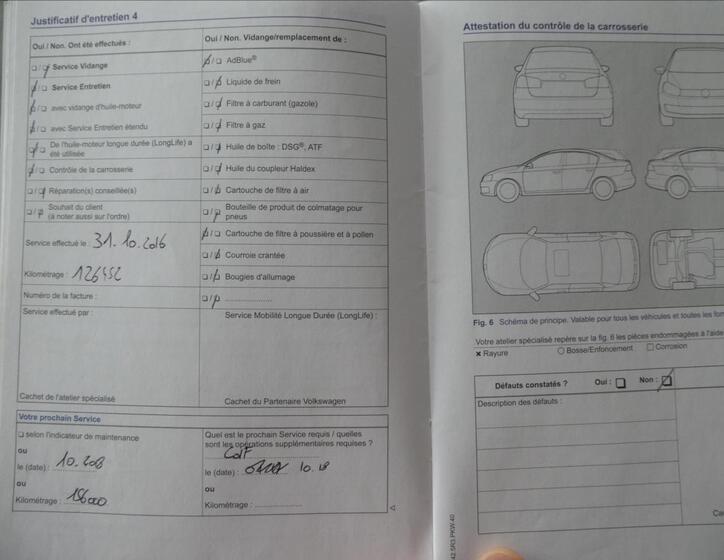 Justificatif d'entretien 4
Oui / Non. Ont été effectués :
Service Vidange
Service Entretien
avec vidange d'huile-moteur
avec Service Entretien étendu
De l'huile-moteur longue durée (LongLife) a
été utilisée
Contrôle de la carrosserie
Réparation(s) conseillée(s)
Souhait du client
(à noter aussi sur l'ordre)
Service effectué le : 31.10.2016
Kilométrage : 126452
Numéro de la facture :
Service effectué par :
Cachet de l'atelier spécialisé
Oui / Non. Vidange/remplacement de :
AdBlue®
Liquide de frein
Filtre à carburant (gazole)
Filtre à gaz
Huile de boîte : DSG®, ATF
Huile du coupleur Haldex
Cartouche de filtre à air
Bouteille de produit de colmatage pour
pneus
Cartouche de filtre à poussière et à pollen
Courroie crantée
Bougies d'allumage
Service Mobilité Longue Durée (LongLife) :
Cachet du Partenaire Volkswagen
Votre prochain Service
selon l'indicateur de maintenance
ou
le (date) : 10.
ou
Kilométrage :
Quel est le prochain Service requis / quelles
sont les opérations supplémentaires requises ?
CdF
le (date) : 10.18
ou
Kilométrage :
Attestation du contrôle de la carrosserie
Fig. 6 Schéma de principe. Valable pour tous les véhicules et toutes les
Votre atelier spécialisé repère sur la fig. 6 les pièces endommagées à
Rayure
Bosse/Enfoncement
Corrosion
Défauts constatés ? Oui : Non :
Description des défauts :